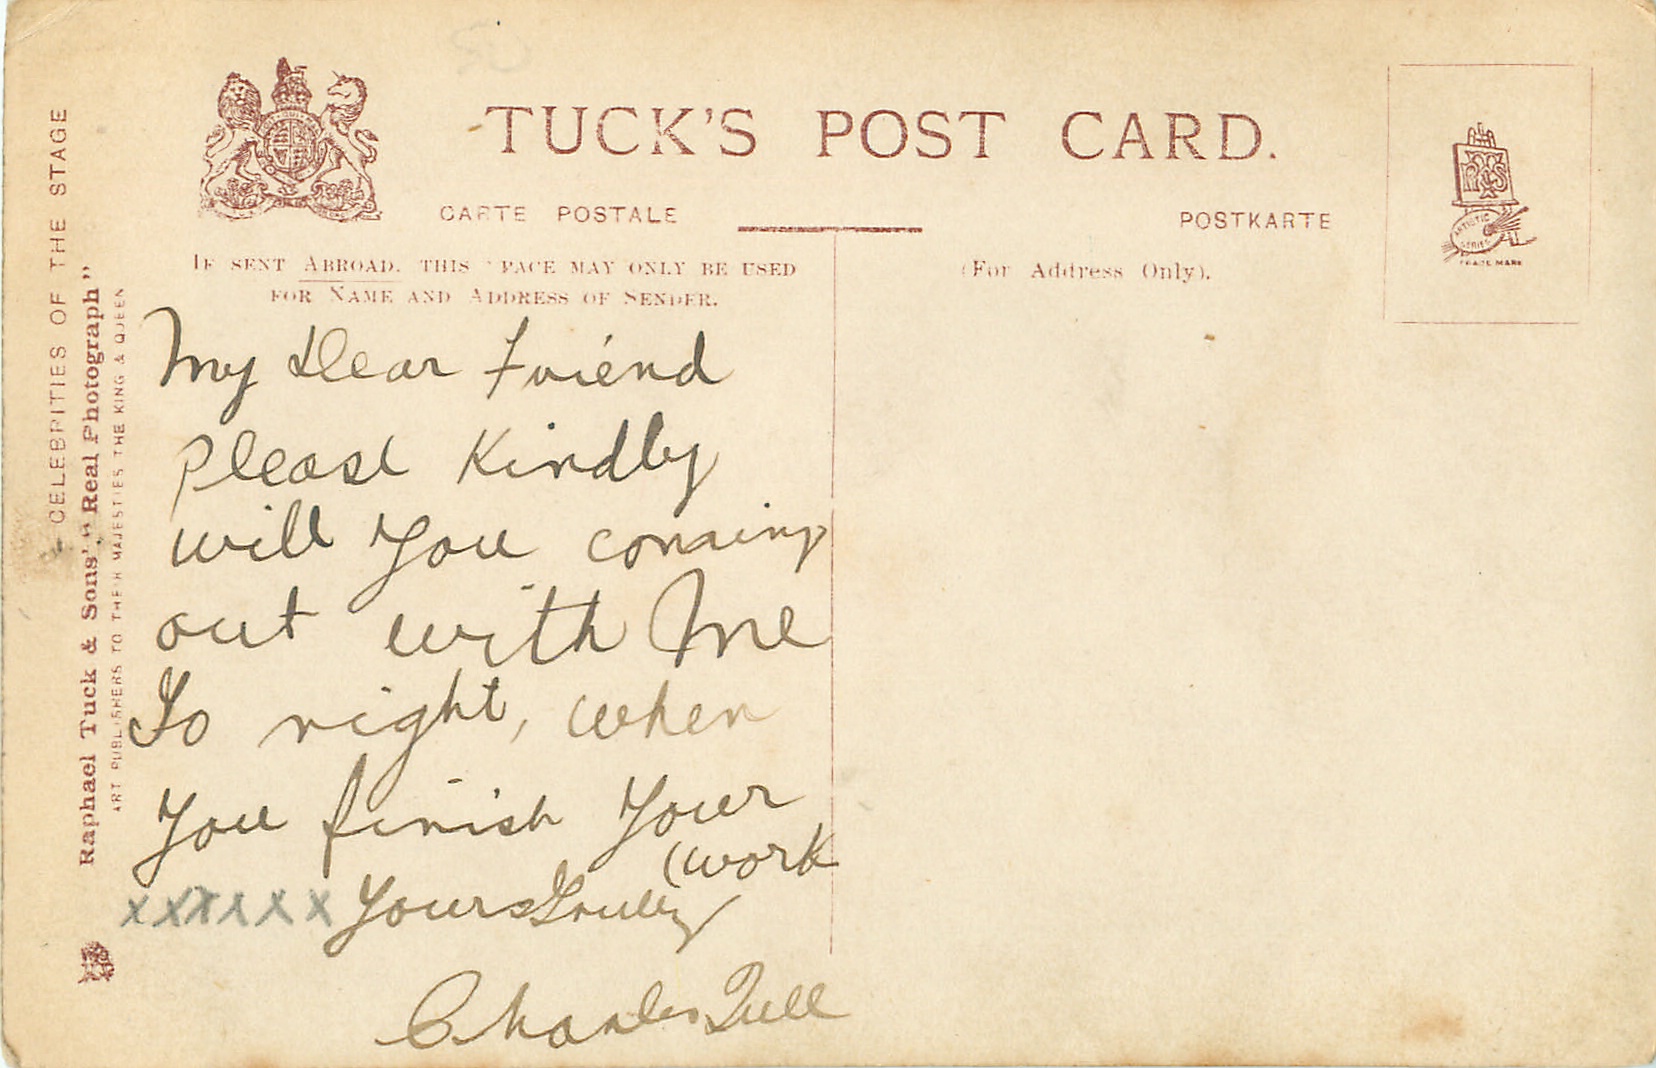 TUCK'S POST CARD.
CARTE POSTALE
POSTKARTE
IF SENT ABROAD, THIS SPACE MAY ONLY BE USED
FOR NAME AND ADDRESS OF SENDER.
(For Address Only).
ARTISTIC SERIES
TRADE MARK
CELEBRITIES OF THE STAGE
Raphael Tuck & Sons' "Real Photograph"
ART PUBLISHERS TO THEIR MAJESTIES THE KING & QUEEN
My Dear Friend
please Kindly
will you comming
out with Me
To night, when
you finish your
(work
xxxxxx Yours Truley
Charles